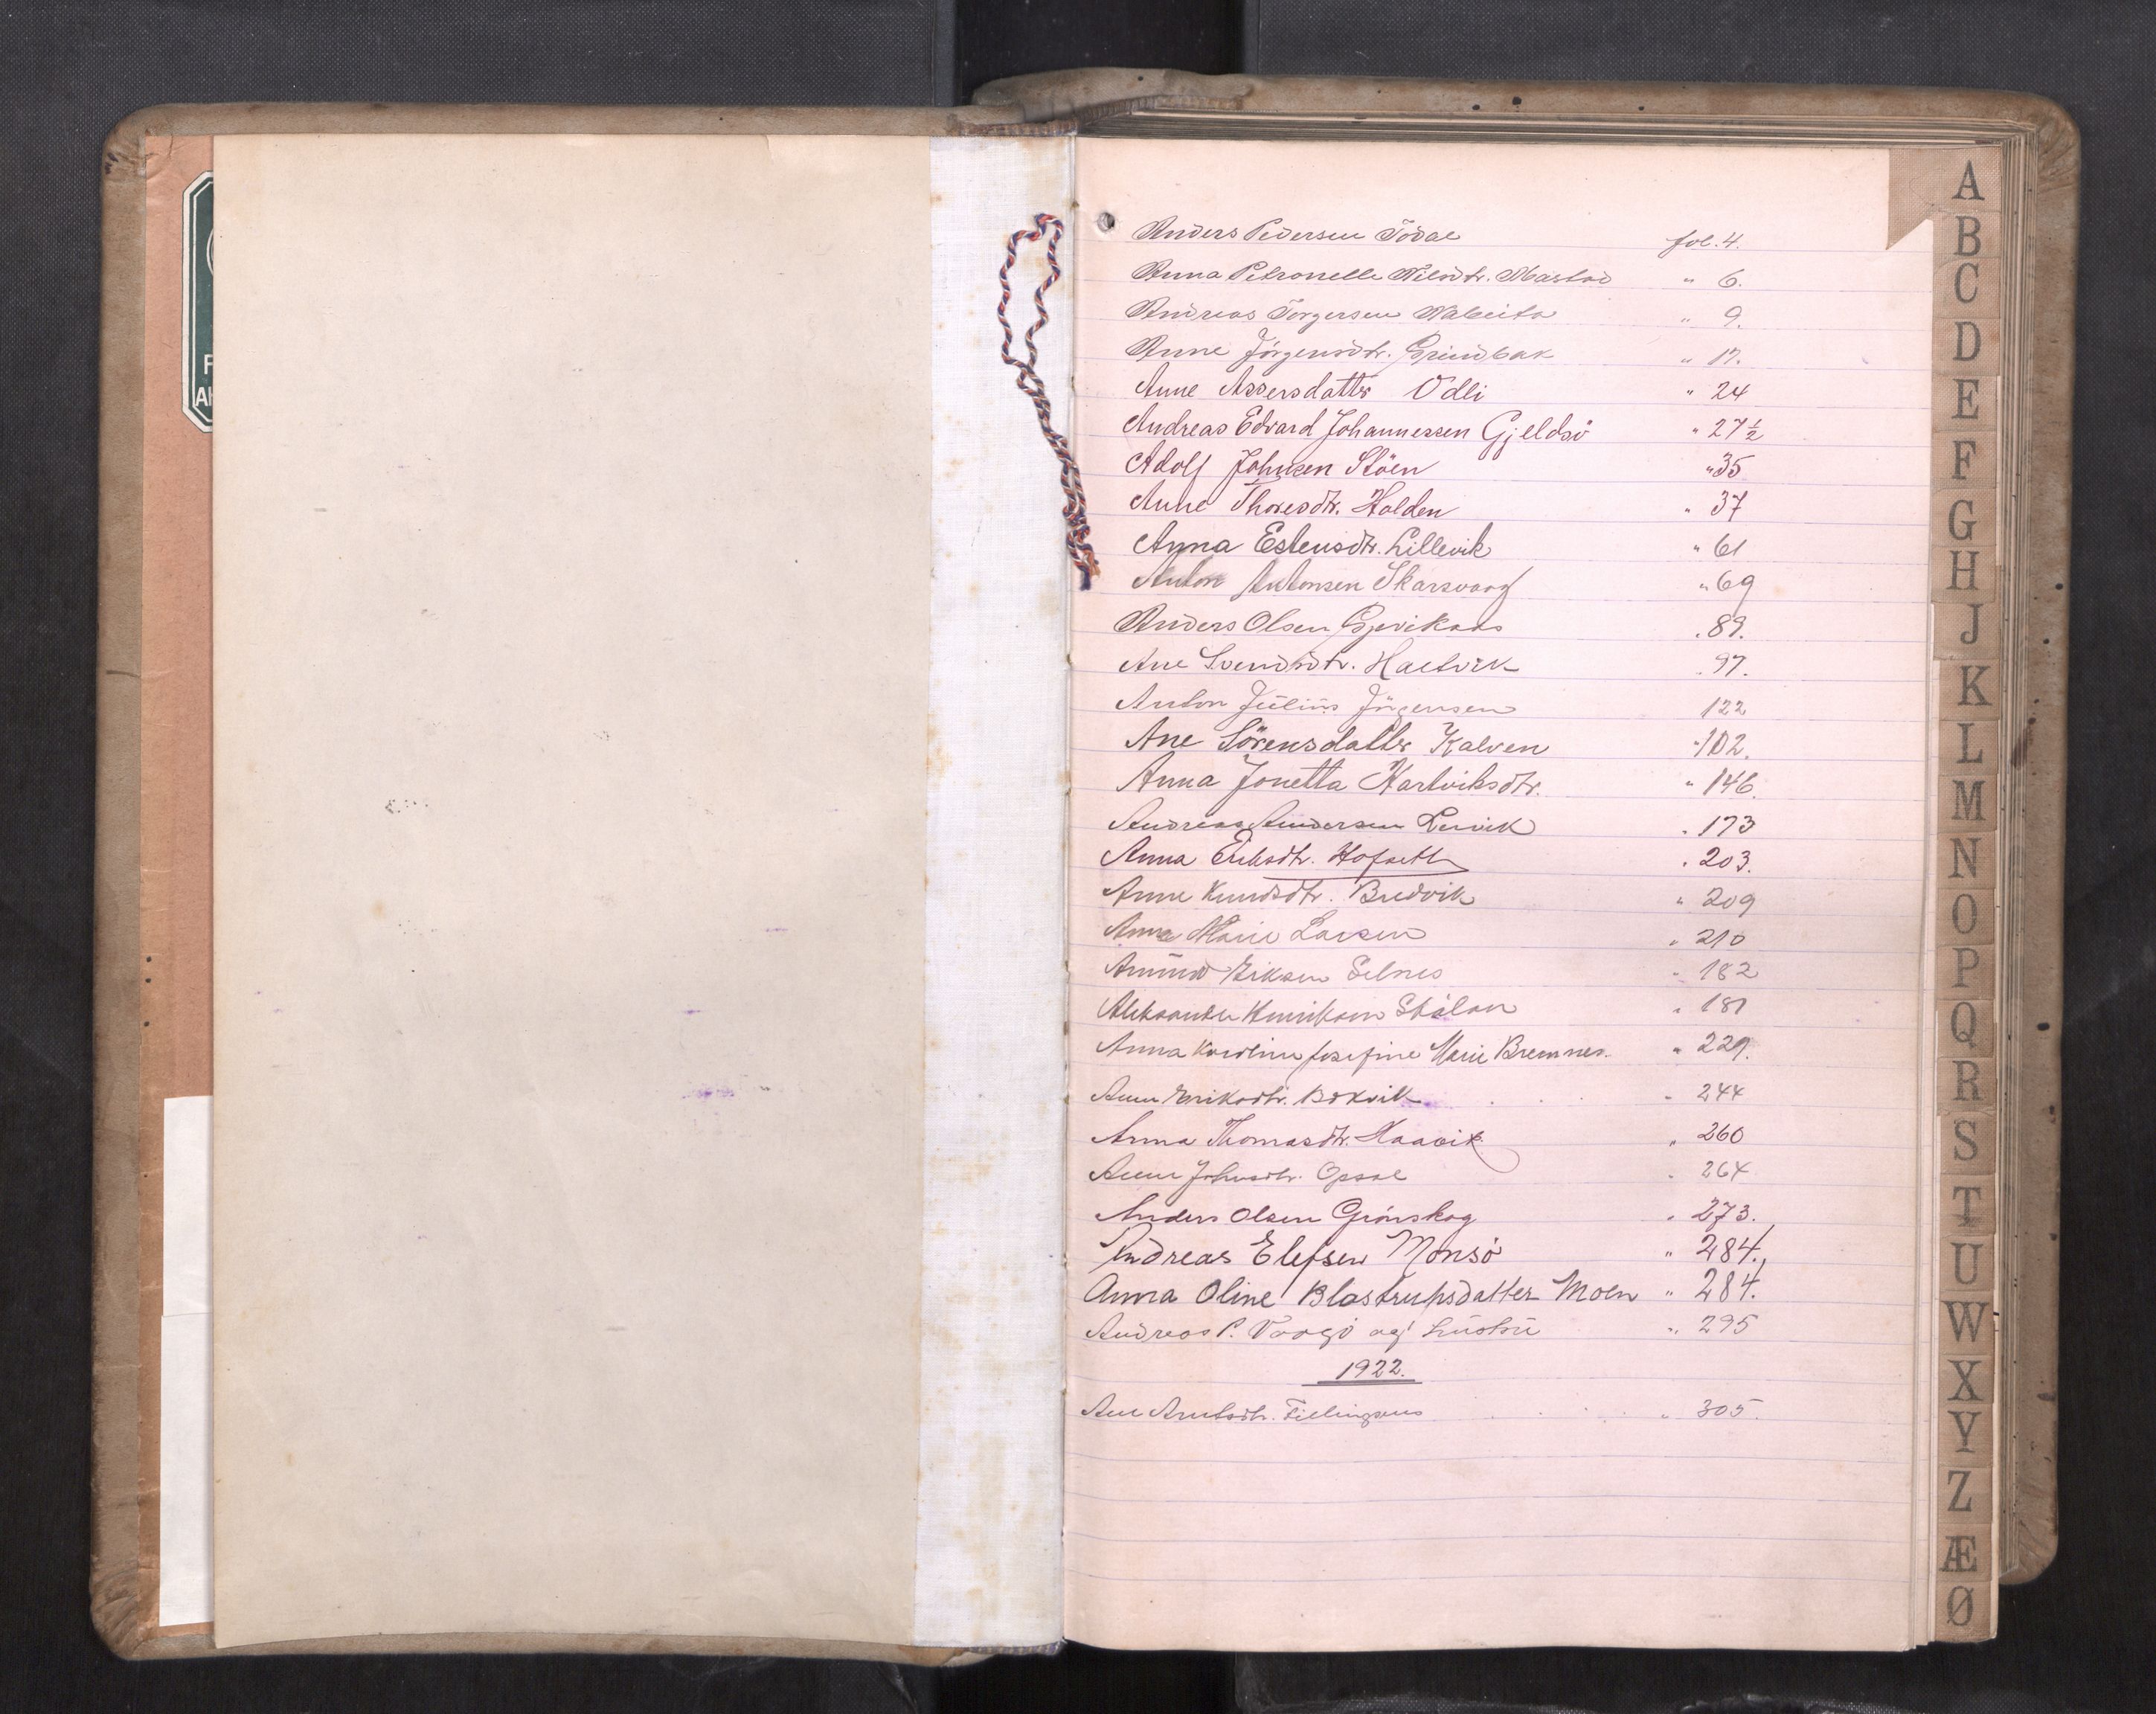 Anders Pedersen Tödal fol. 4.
Anna Petronelle Nilsdtr. Mastad " 6.
Andreas Torgersen " 9.
Anne Jörgensdtr. Grindbak " 17.
Anne Assersdatter Odli " 24
Andreas Edvard Johannessen Gjeldsö " 27½
Adolf Johnsen Stöen " 35
Anne Thoresdtr. Holden " 37
Anna Estensdtr. Lillevik " 61
Anton Antonsen Skarsvaag " 69
Anders Olsen Gjevikaas " 89.
Ane Svendsdtr. Haltvik 97.
Anton Julius Jörgensen 122
Ane Sörensdatter Kalven " 102.
Anna Jonetta Hartviksdtr. " 146.
Andreas Andersen Lervik " 173
Anna Eriksdtr. Hofseth " 203.
Anne Knudsdtr. Bredvik " 209
Anna Marie Larsen " 210
Amund Eriksen Selnes " 182
Aleksander Henriksen Stølan " 181
Anna Karoline Josefine Marie Bremnes. " 229.
Anne Eriksdtr. Bokvik " 244
Anna Thomasdtr. Haavik " 260
Anne Johnsdtr. Opsal " 264
Anders Olsen Grönskog " 273.
Andreas Elefsen Monsö " 284.
Anna Oline Blostrupsdatter Moen " 284.
Andreas P. Vaagö og hustru " 295
1922.
Ane Arntsdtr. Fillingsnes " 305.
A
B
C
D
E
F
G
H
J
K
L
M
N
O
P
Q
R
S
T
U
W
X
Y
Z
Æ
Ø